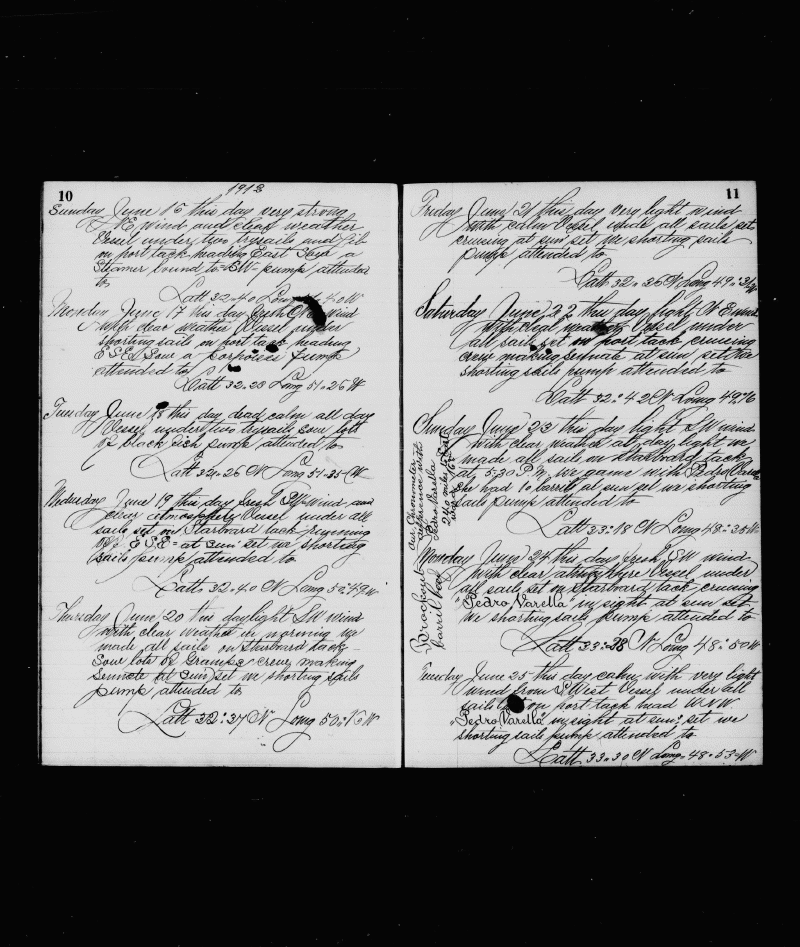 10
1912
Sunday June 16 this day very strong
N.E. wind and clear weather
Vessel under two trysails and jib
on port tack heading East Saw a
Steamer bound to SW pump attended
to
Latt 32-40 40 W
Monday June 17 this day fresh wind
with clear weather Vessel under
shorting sails on port tack heading
E.S.E. Saw a porpoises pump
attended to
Latt 32-28 Long 51-26 W
Tuesday June 18 this day dead calm all day
Vessel under two trysails Saw lott
of black fish pump attended to
Latt 32-26 N Long 51-35 W
Wednesday June 19 this day fresh wind and
clear atmosphere Vessel under all
sails set on Starboard tack
E S E at sun set we shorting
sails pump attended to
Latt 32-40 N Long 50-49 W
Thursday June 20 this day light SW wind
with clear weather in morning we
made all sails on Starboard tack
Saw lots of Gramps crew making
Sennate at sun set we shorting sails
pump attended to
Latt 32-37 N Long 50-13 W
11
Friday June 21 this day very light wind
with calm Vessel under all sails set
cruising at sun set we shorting sails
pump attended to
Latt 32-26 N Long 49-31 W
Saturday June 22 this day light N E wind
with clear weather Vessel under
all sails set on port tack cruising
crew making sennate at sun set we
shorting sails pump attended to
Latt 32-42 N Long 49,16
Sunday June 23 this day light SW wind
with clear weather at day light we
made all sail on starboard tack
at 5,30 P.M. we game with Pedro Varella
she had 10 barrels at sun set we shorting
sails pump attended to
Latt 33-18 N Long 48-35 W
our Chronometer
difference with
Pedro Varella
240 miles to East
barrel
Monday June 24 this day fresh SW wind
with clear atmosphere Vessel under
all sails set on Starboard tack cruising
"Pedro Varella" in sight at sun set
we shorting sails pump attended to
Latt 33-38 N Long 48-50 W
Tuesday June 25 this day calm with very light
wind from S West Vessel under all
sails set on port tack head W.N.W.
"Pedro Varella" in sight at sun set we
shorting sails pump attended to
Latt 33-30 N Long 48-53 W